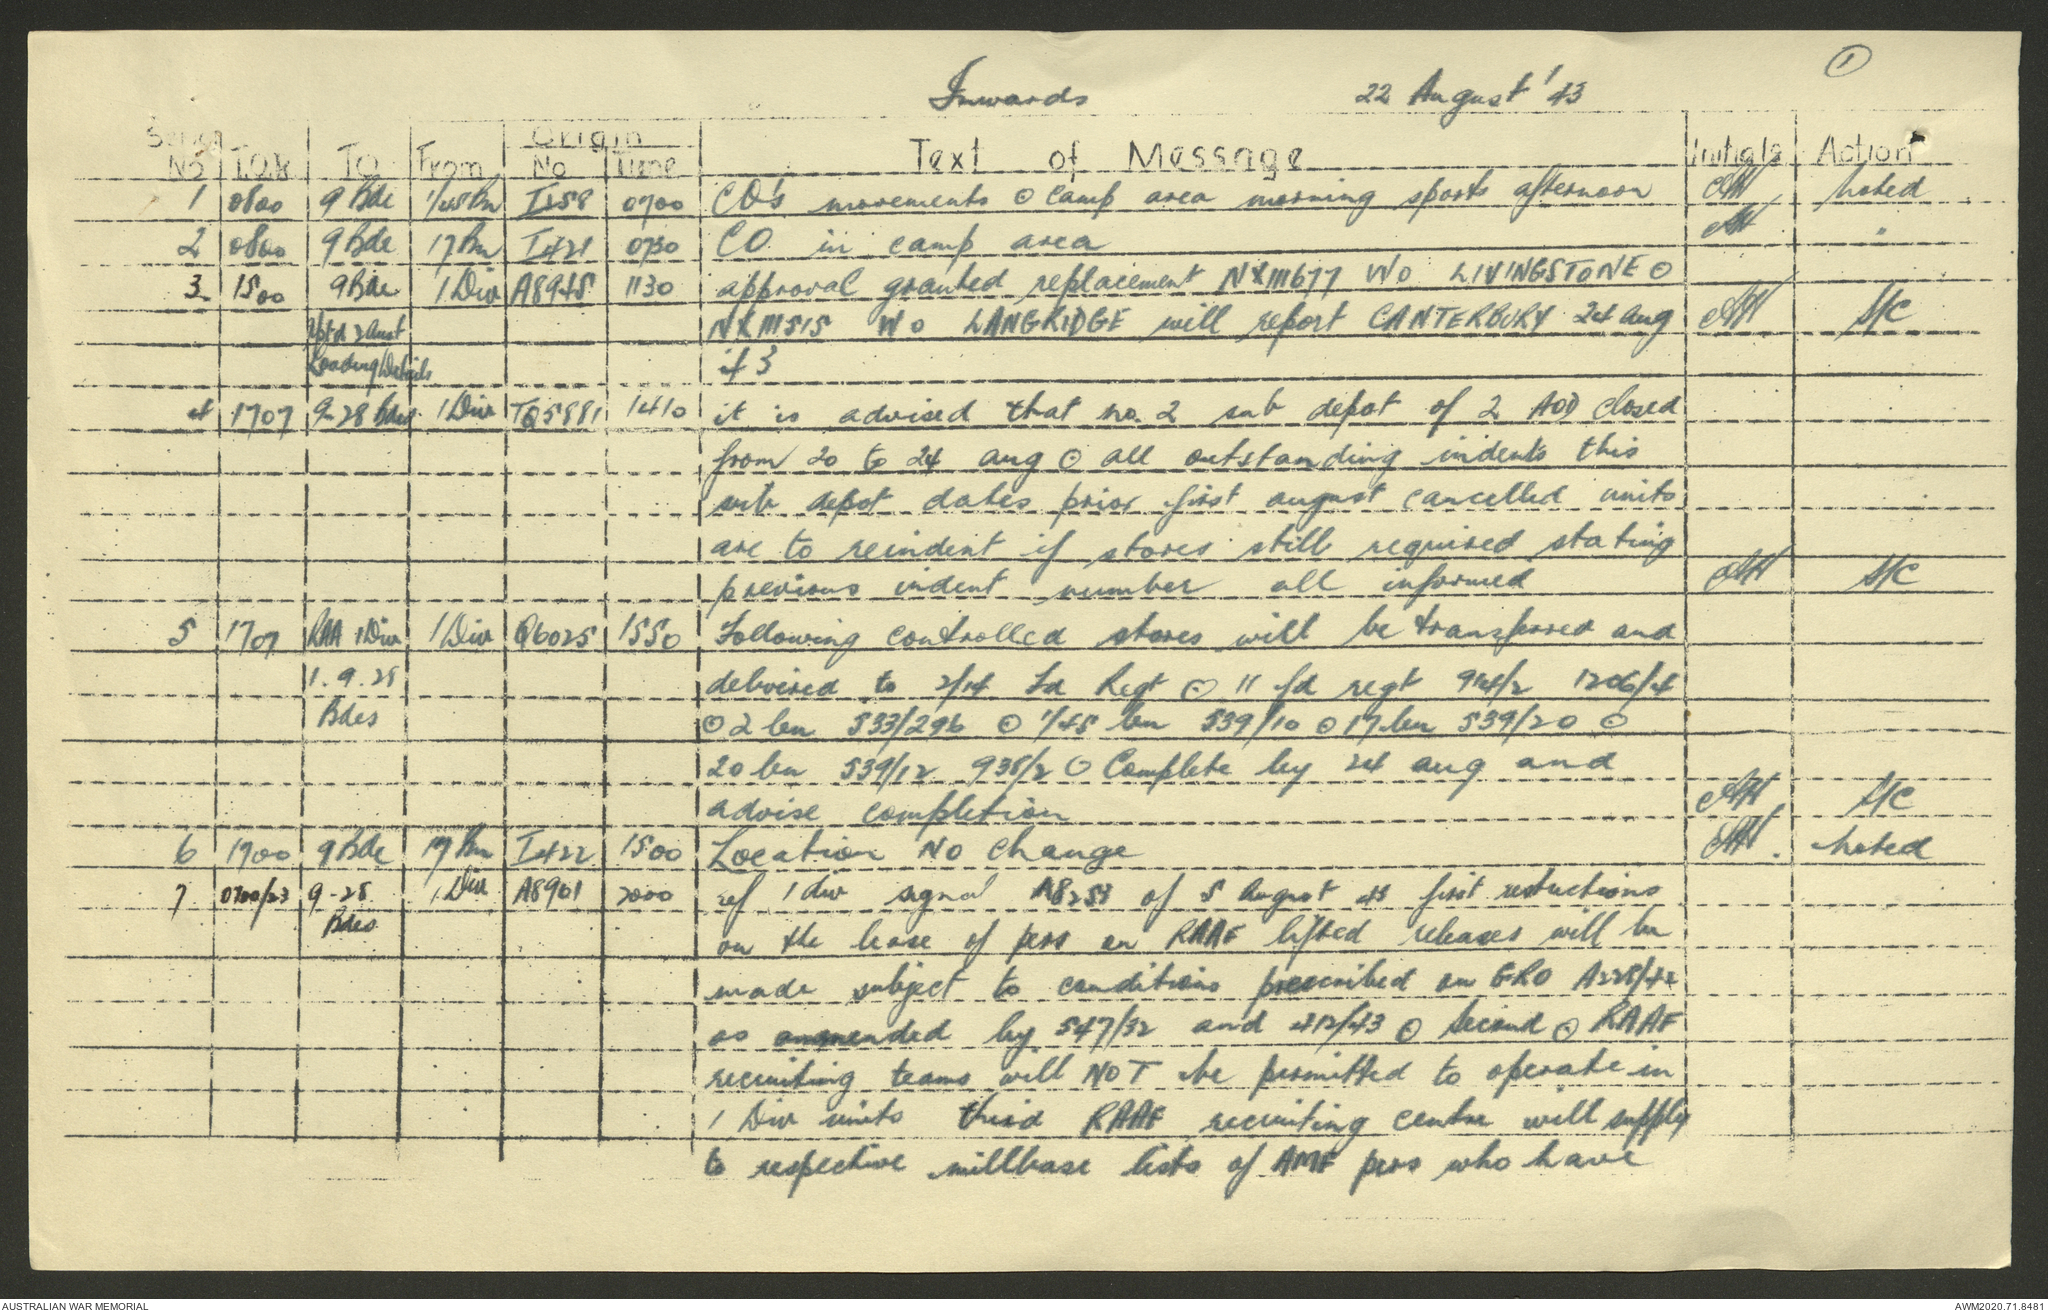 1
Inwards 22 August '43
Serial No TOR TO From Origin No Time Text of Message Initials Action
1 0800 9 Bde 1/45 Bn I258 0700 CO's movements ⊙ camp area morning sports afternoon AH noted
2 0800 9 Bde 17 Bn I421 0730 CO in camp area AH "
3 1500 9 Bde 1 Div A8945 1130 approval granted replacement NX111677 WO LIVINGSTONE ⊙
NX111515 WO LANGRIDGE will report CANTERBURY 24 aug AH S/C
Loading Details if 3
4 1707 9-28 Bdes 1 Div TQ5881 1410 it is advised that no. 2 sub depot of 2 AOD closed
from 20 to 24 aug ⊙ all outstanding indents this
sub depot dates prior first august cancelled units
are to reindent if stores still required stating
previous indent number all informed AH S/C
5 1707 RAA 1 Div 1 Div Q6025 1550 Following controlled stores will be transferred and
1. 9. 28 delivered to 2/14 Fd Regt ⊙ 11 fd regt 914/2 1206/4
Bdes ⊙ 2 bn 533/296 ⊙ 1/45 bn 539/10 ⊙ 17 bn 539/20 ⊙
20 bn 539/12 935/2 ⊙ Complete by 24 aug and
advise completion AH S/C
6 1900 9 Bde 17 Bn I422 1500 Location No Change AH. noted
7 0700/23 9-28 1 Div A8901 2000 ref 1 div signal A8251 of 5 August 43 first restrictions
Bdes on the lease of pers on RAAF lifted releases will be
made subject to conditions prescribed on GRO A228/42
as ammended by 547/32 and 412/43 ⊙ Second ⊙ RAAF
recruiting teams will NOT be permitted to operate in
1 Div units third RAAF recruiting centre will supply
to respective millbase lists of AMF pers who have
AUSTRALIAN WAR MEMORIAL AWM2020.71.8481